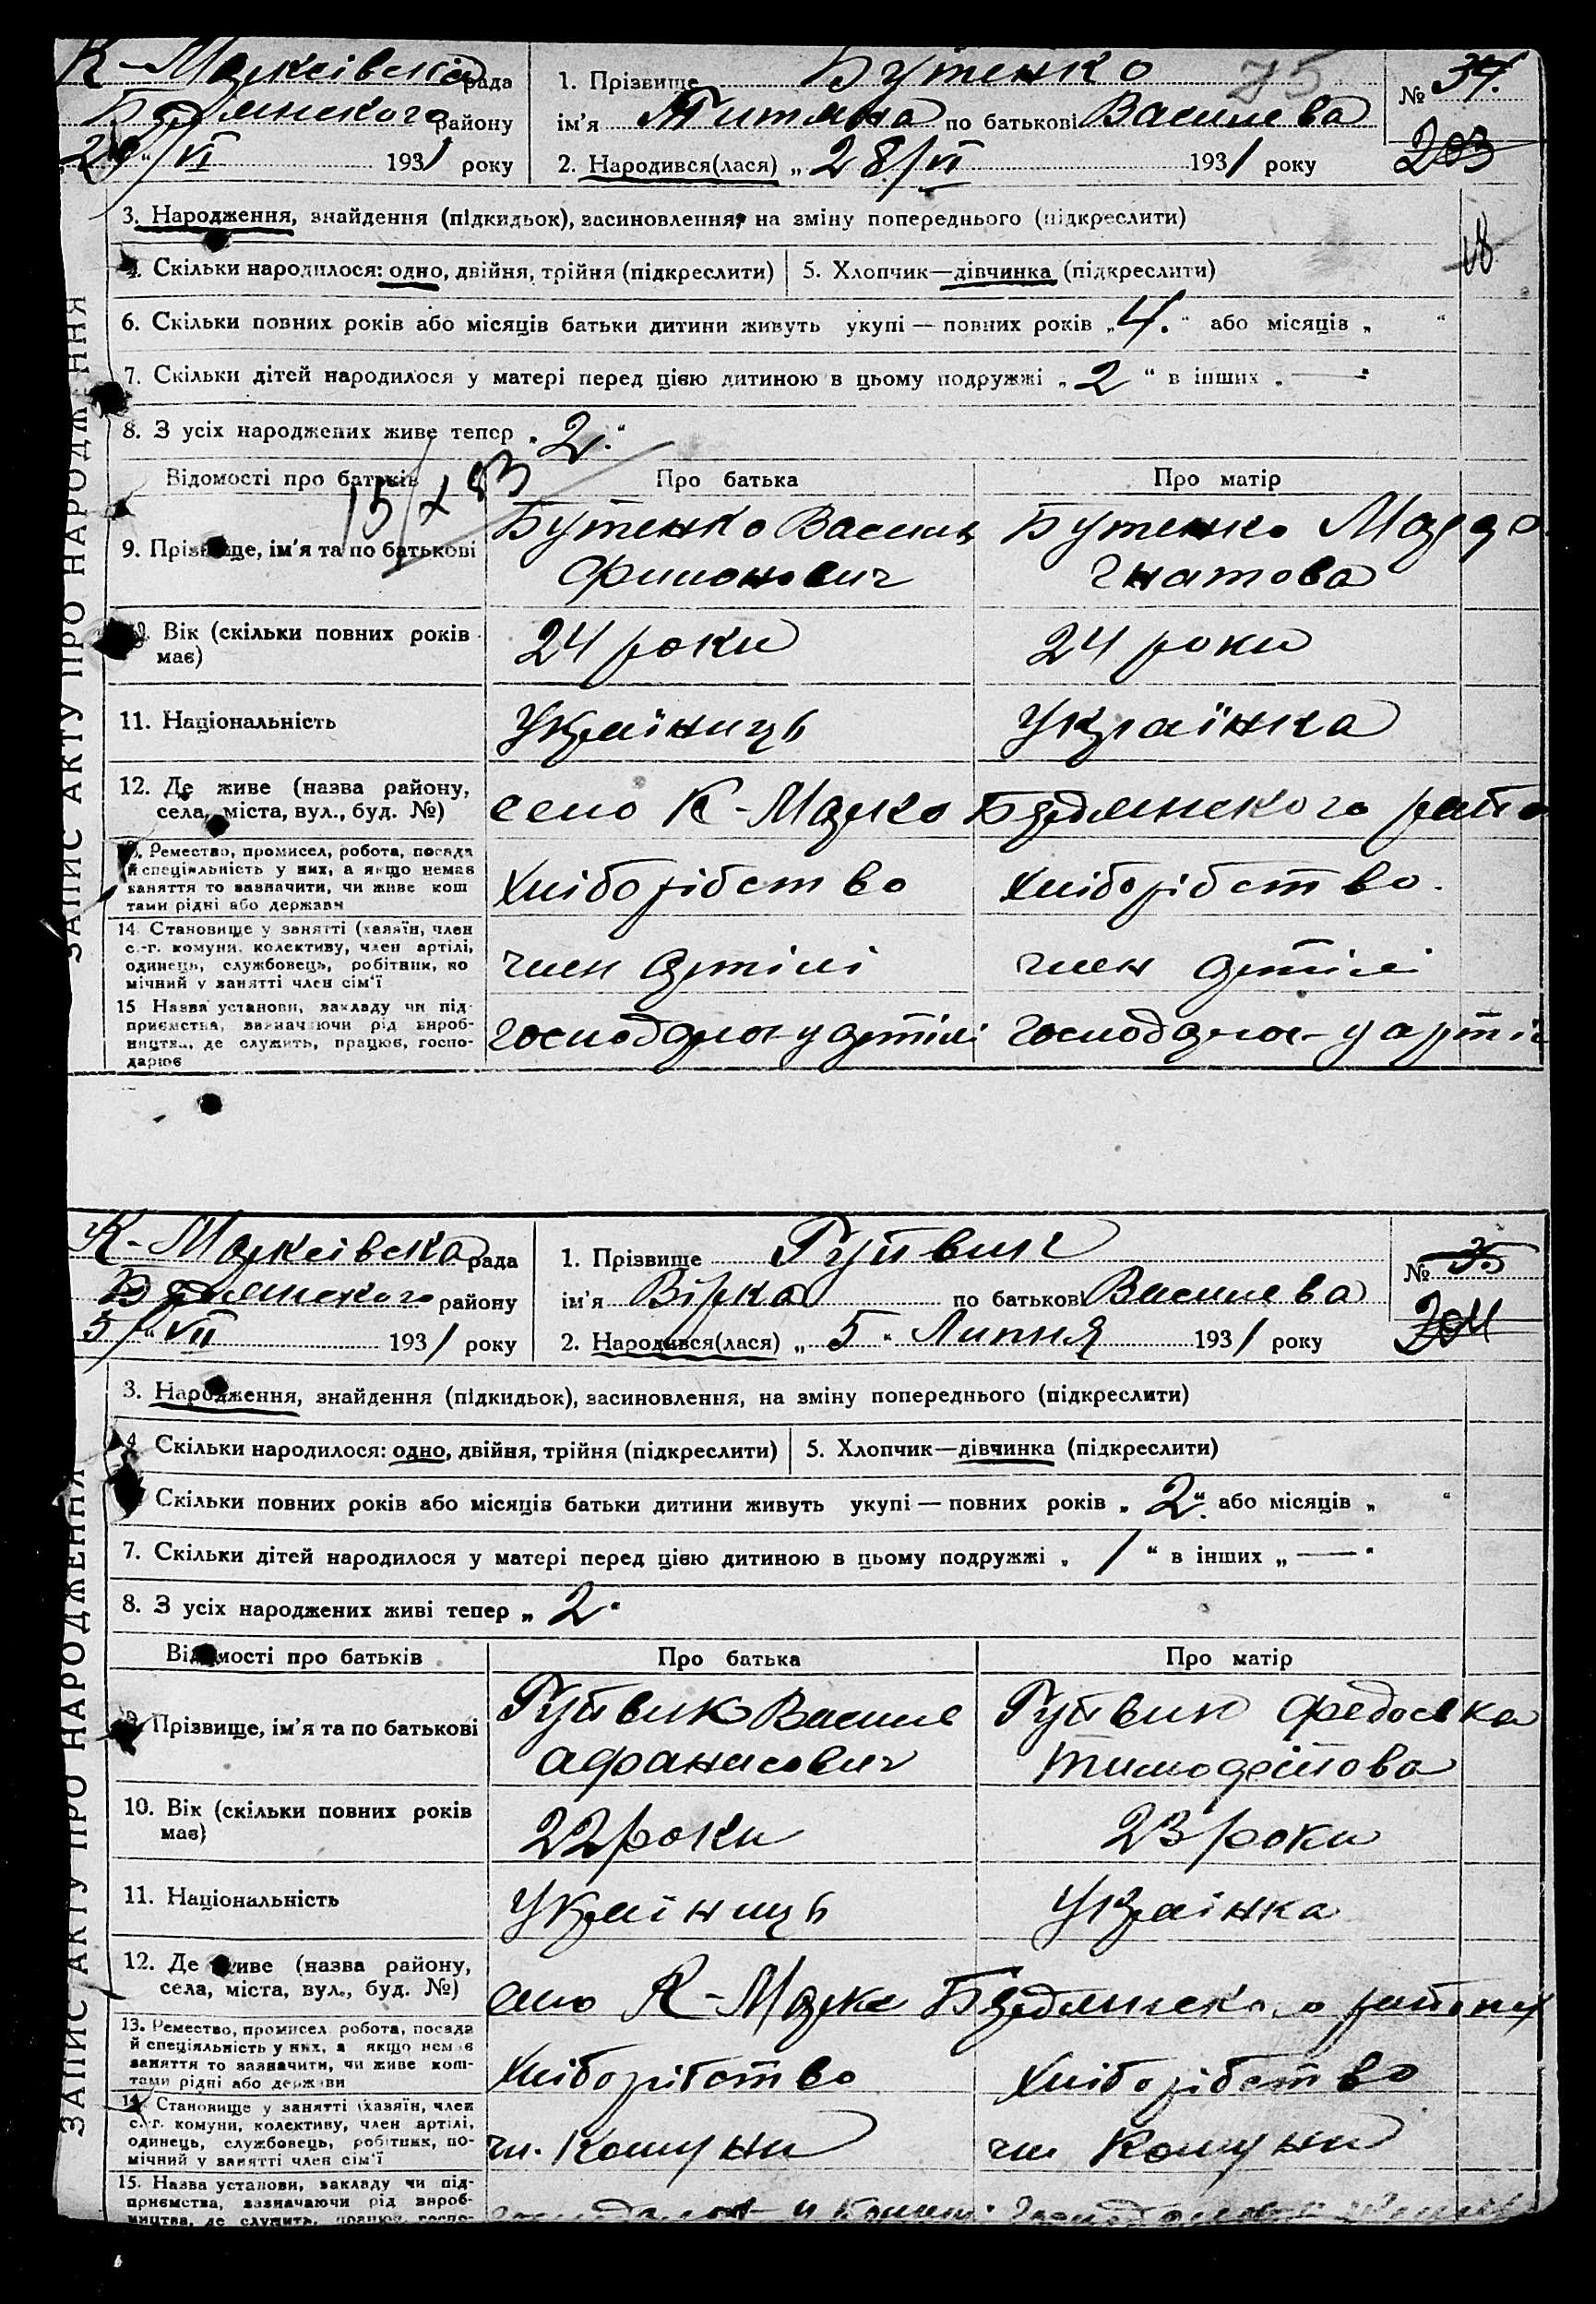 К-Марксівська рада
1. Прізвище Бутенко
75
№ 34.
Бердянского району
ім'я Титяна по батькові Василева
203
29/VI 1931 року
2. Народився(лася) „ 28/VI 1931 року
3. Народження, знайдення (підкидьок), засиновлення, на зміну попереднього (підкреслити)
18
4. Скільки народилося: одно, двійня, трійня (підкреслити)
5. Хлопчик—дівчинка (підкреслити)
6. Скільки повних років або місяців батьки дитини живуть укупі — повних років „4.“ або місяців „ “
7. Скільки дітей народилося у матері перед цією дитиною в цьому подружжі „2“ в інших „—“
8. З усіх народжених живе тепер „2.“
Відомості про батьків
Про батька
Про матір
9. Прізвище, ім'я та по батькові
Бутенко Василь
Филонович
Бутенко Мара
Гнатова
10. Вік (скільки повних років має)
24 роки
24 роки
11. Національність
Україниць
Українка
12. Де живе (назва району,
села, міста, вул., буд. №)
село К-Маркс Бердянского райо
13. Ремество, промисел, робота, посада
й спеціяльність у них, а якщо немає
заняття то зазначити, чи живе кош
тами рідні або держави
Хліборібство
Хліборібство.
14. Становище у занятті (хазяїн, член
с.-г. комуни, колективу, член артілі,
одинець, службовець, робітник, по
мічний у занятті член сім'ї
член артілі
член артілі
15 Назва установи, закладу чи під-
приємства, зазначаючи рід вироб-
ництва, де служить, працює, госпо-
дарює
господарює у артілі
господарює у артіл
ЗАПИС АКТУ ПРО НАРОДЖЕННЯ
К-Марксівска рада
1. Прізвище Гуйвик
№ 35
Бердянского району
ім'я Вірка по батькові Василева
204
5/VII 1931 року
2. Народився(лася) „ 5 “ Липня 1931 року
3. Народження, знайдення (підкидьок), засиновлення, на зміну попереднього (підкреслити)
4. Скільки народилося: одно, двійня, трійня (підкреслити)
5. Хлопчик—дівчинка (підкреслити)
Скільки повних років або місяців батьки дитини живуть укупі — повних років „2“. або місяців „ “
7. Скільки дітей народилося у матері перед цією дитиною в цьому подружжі „1“ в інших „—“
8. З усіх народжених живі тепер „2“
Відомості про батьків
Про батька
Про матір
9. Прізвище, ім'я та по батькові
Гуйвик Василь
Афанасович
Гуйвик Федоска
Тимофейова
10. Вік (скільки повних років
має)
22 роки
23 роки
11. Національність
Українець
Українка
12. Де живе (назва району,
села, міста, вул., буд. №)
село К-Маркс Бердянского району
13. Ремество, промисел робота, посада
й спеціяльність у них, а якщо немає
заняття то зазначити, чи живе кош-
тами рідні або держави
Хліборібство
Хліборібство
14. Становище у занятті (хазяїн, член
с.-г. комуни, колективу, член артілі,
одинець, службовець, робітник, по-
мічний у занятті член сім'ї
чл. Комуни
чл Комуни
15. Назва установи, закладу чи під-
приємства, зазначаючи рід вироб-
ництва, де служить, працює, госпо-
ЗАПИС АКТУ ПРО НАРОДЖЕННЯ